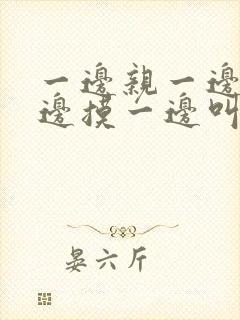 一邊親一邊
邊摸一邊叫
晏六斤